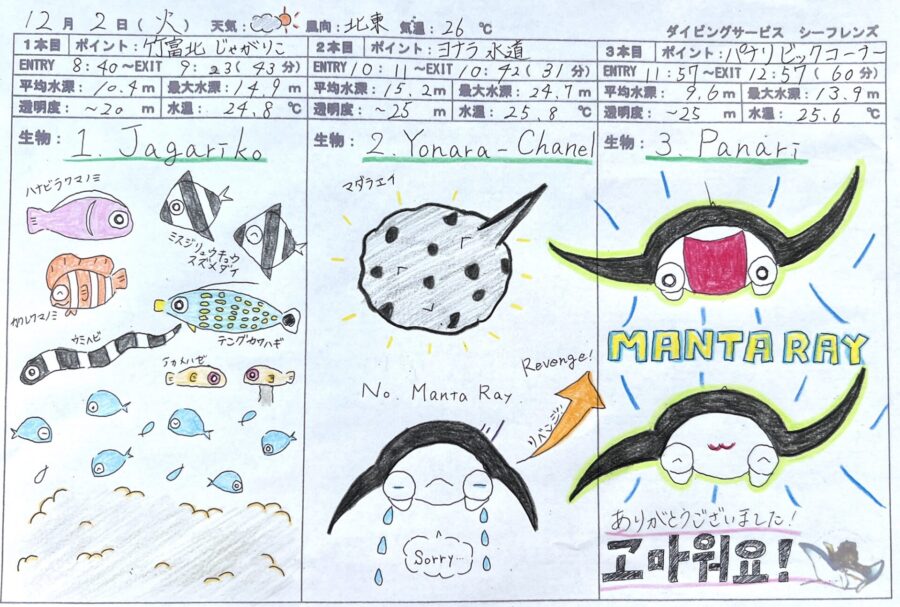 12月 2日(火) 天気: 風向:北東 気温:26 ℃
ダイビングサービス シーフレンズ
1本目 ポイント:竹富北 じゃがりこ
ENTRY 8:40~EXIT 9:23(43分)
平均水深: 10.4m 最大水深: 14.9m
透明度: ~20m 水温: 24.8℃
生物: 1. Jagariko
ハナビラクマノミ
ミスジリュウキュウ
スズメダイ
カクレクマノミ
テングカワハギ
ウミヘビ
2本目 ポイント:ヨナラ水道
ENTRY 10:11~EXIT 10:42(31分)
平均水深: 15.2m 最大水深: 24.7m
透明度: ~25m 水温: 25.8℃
生物: 2. Yonara-Chanel
マダラエイ
No. Manta Ray.
Revenge!
リベンジ
Sorry...
3本目 ポイント:パナリビックコーナー
ENTRY 11:57~EXIT 12:57(60分)
平均水深: 9.6m 最大水深: 13.9m
透明度: ~25m 水温: 25.6℃
生物: 3. Panari
MANTA RAY
ありがとうございました!
고마워요!